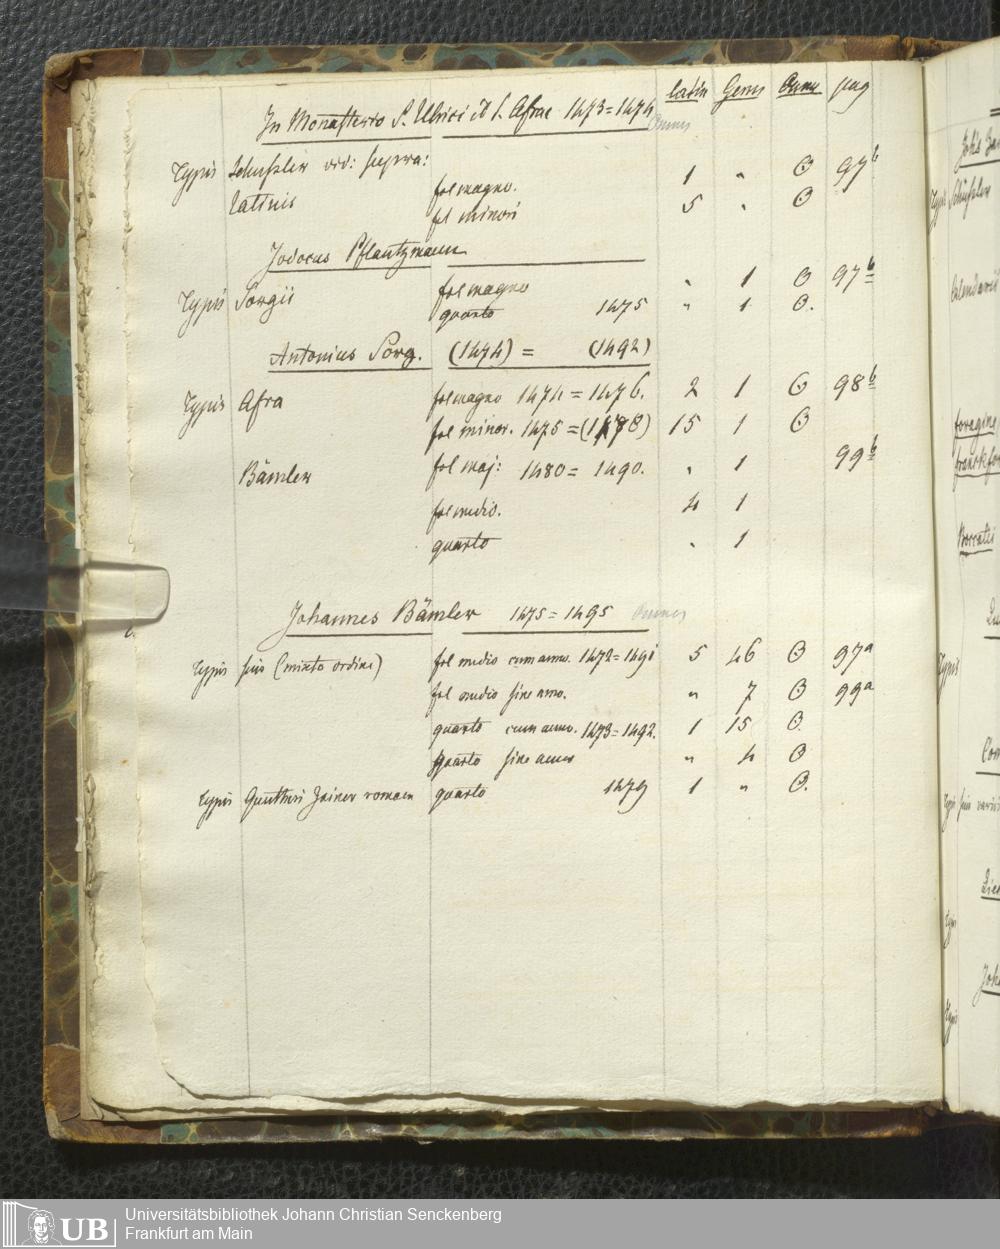 latin Germ Omn pag
In Monasterio S. Ulrici et S. Afrae 1473=1474
Typis Schuszler vid: supra: fol magno. 1 " O 97b
Latinis fol minori 5 " O
Jodocus Pflantzmann
Typis Sorgii fol magno " 1 O 97b
quarto 1475 " 1 O.
Antonius Sorg. (1474) = (1492)
Typis Afra fol magno 1474 = 1476. 2 1 O 98b
fol minor. 1475 = (1478) 15 1 O
Bämler fol maj: 1480 = 1490. " 1 99b
fol medio. 4 1
quarto " 1
Johannes Bämler 1475 = 1495
Typis suis (mixto ordine) fol medio cum anno. 1472=1491 5 46 O 97a
fol medio sine ano. " 7 O 99a
quarto cum anno. 1473=1492. 1 15 O.
quarto sine anno " 4 O
Typis Guntheri Zainer roman quarto 1479 1 " O.
Typis Schuszler
Calendarii
foragine
franckfor
Boccatii
Typis
Com
Typis suis variis
Typis
Joha
Typis
UB
Universitätsbibliothek Johann Christian Senckenberg
Frankfurt am Main